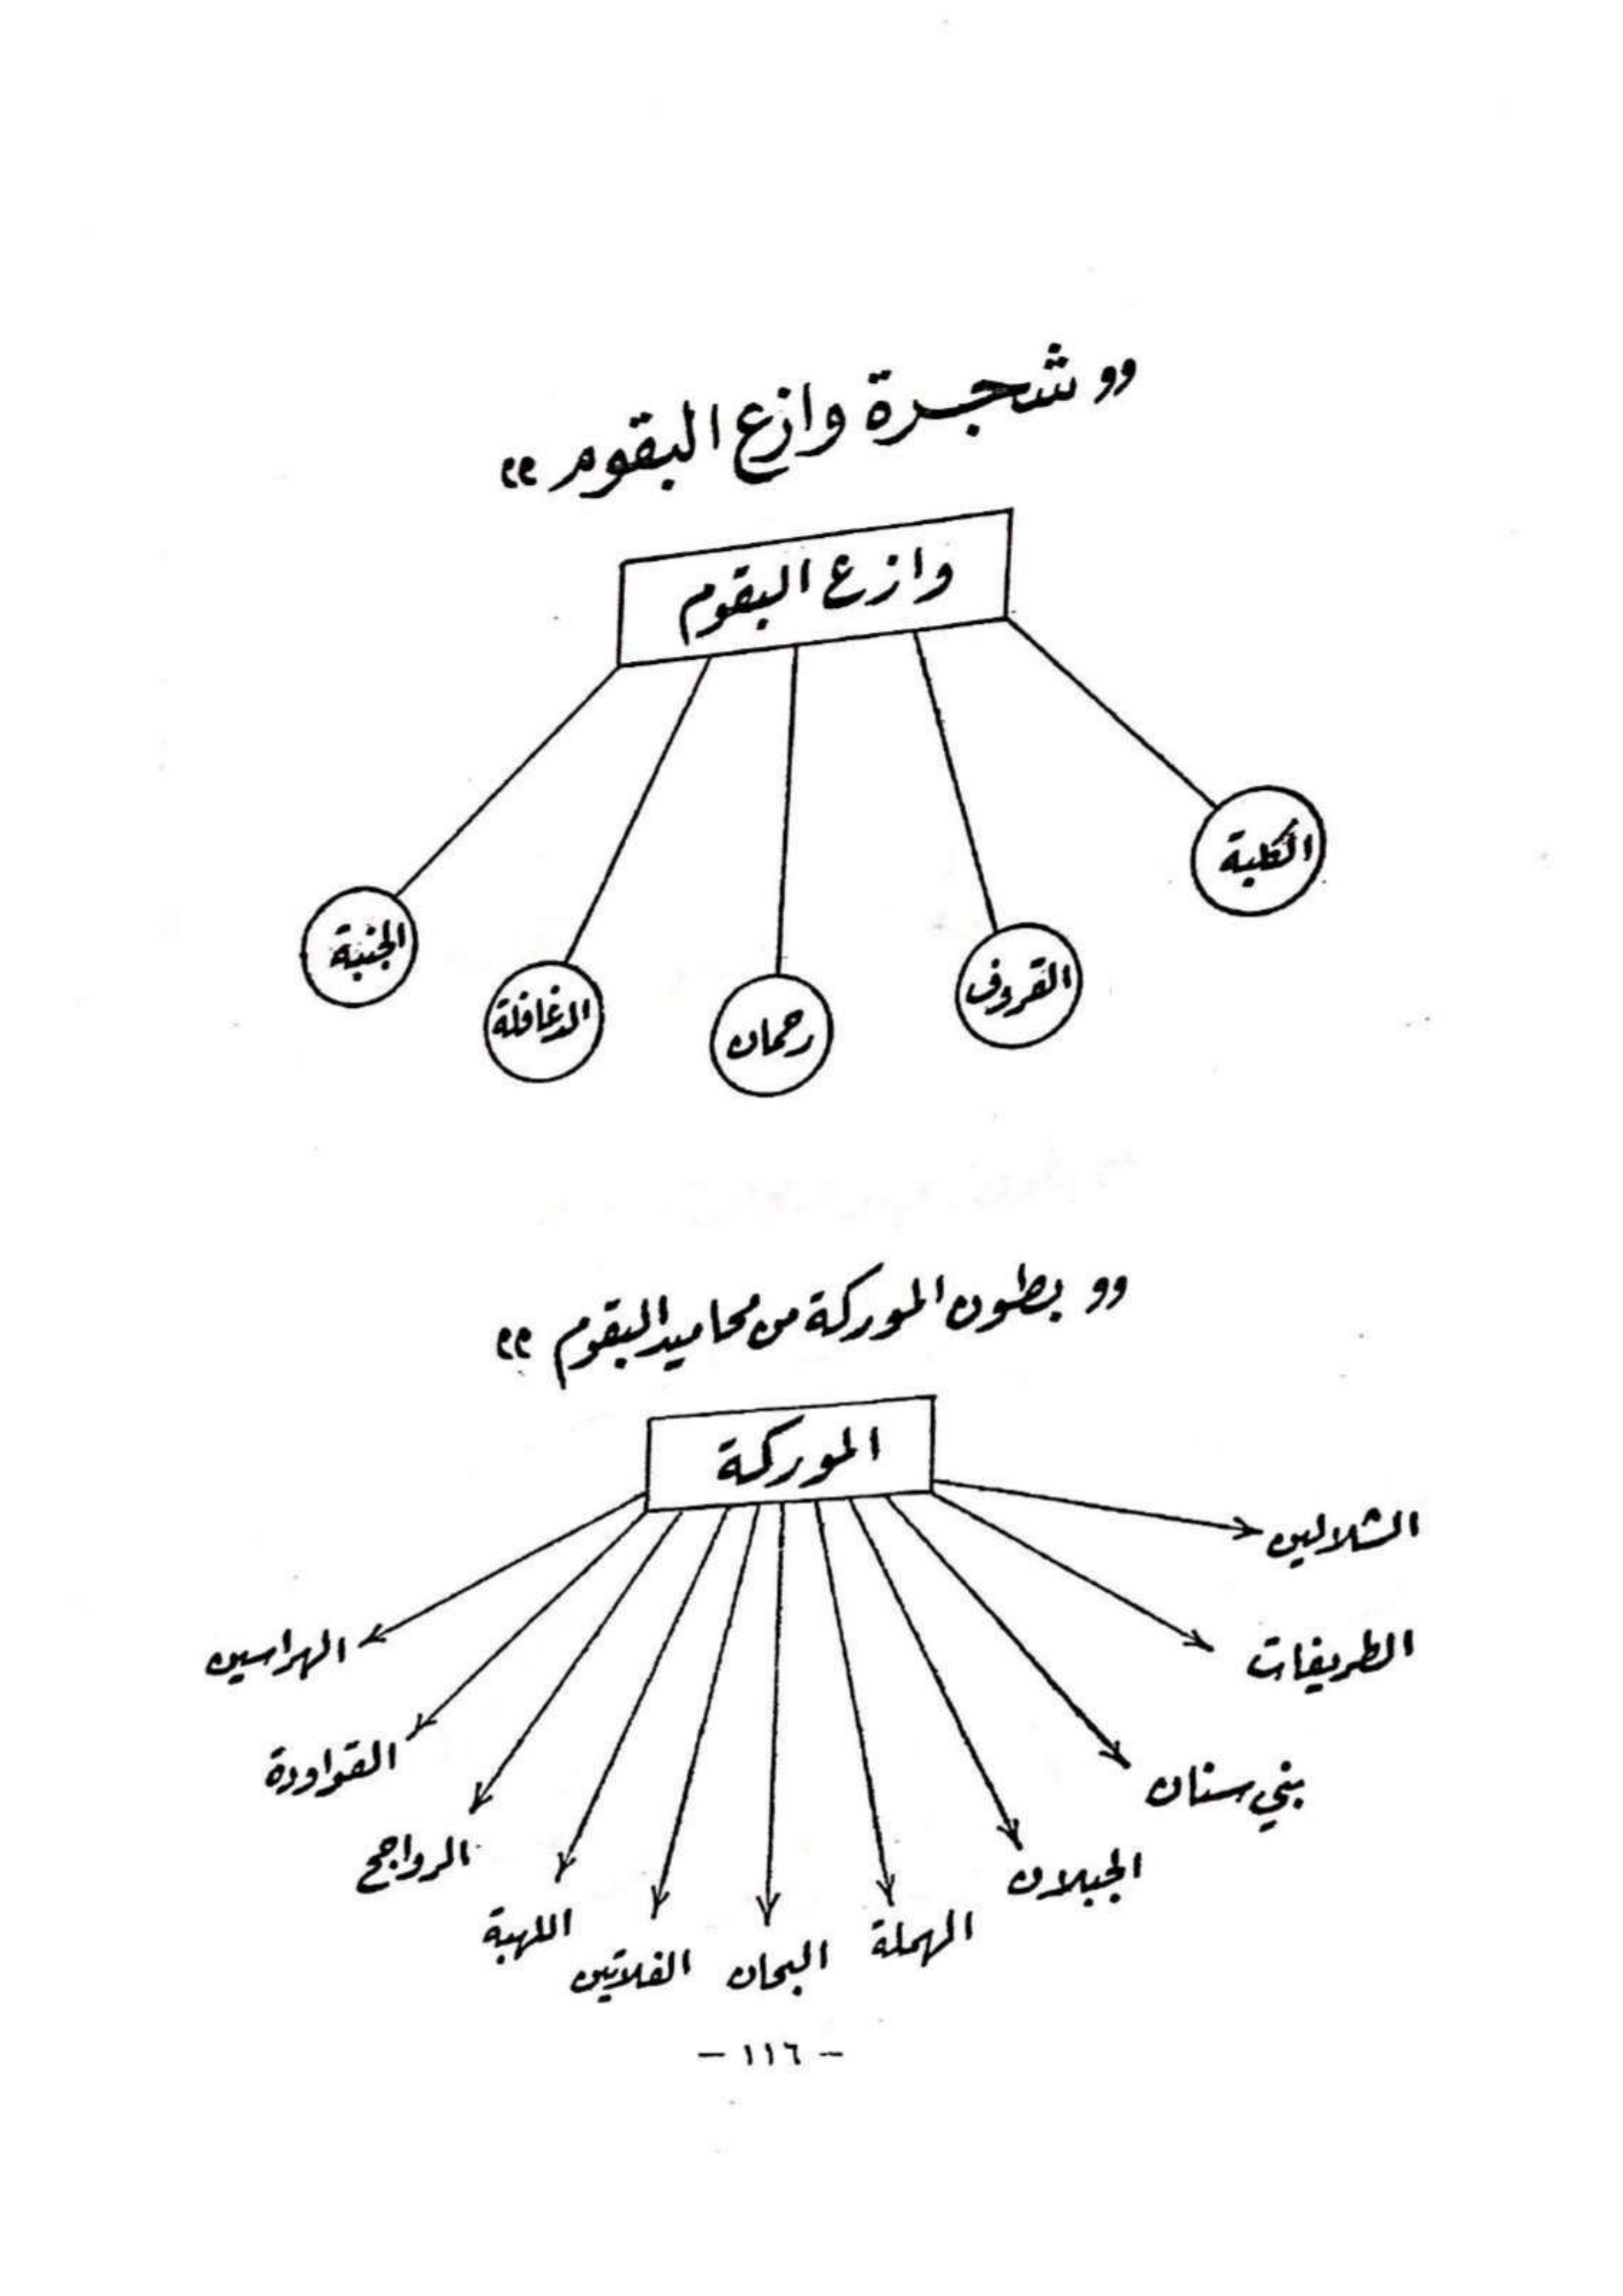 „ شجرة وازع البقوم „
وازع البقوم
الكلبة
القروف
رحمان
الدغافلة
الجنبة
„ بطون الموركة من محاميد البقوم „
الموركة
الشلالين
الطريفات
بني سنان
الجبلان
الهملة
البحان
الفلاتين
اللهبة
الرواجح
القواودة
الهراسين
- ١١٦ -